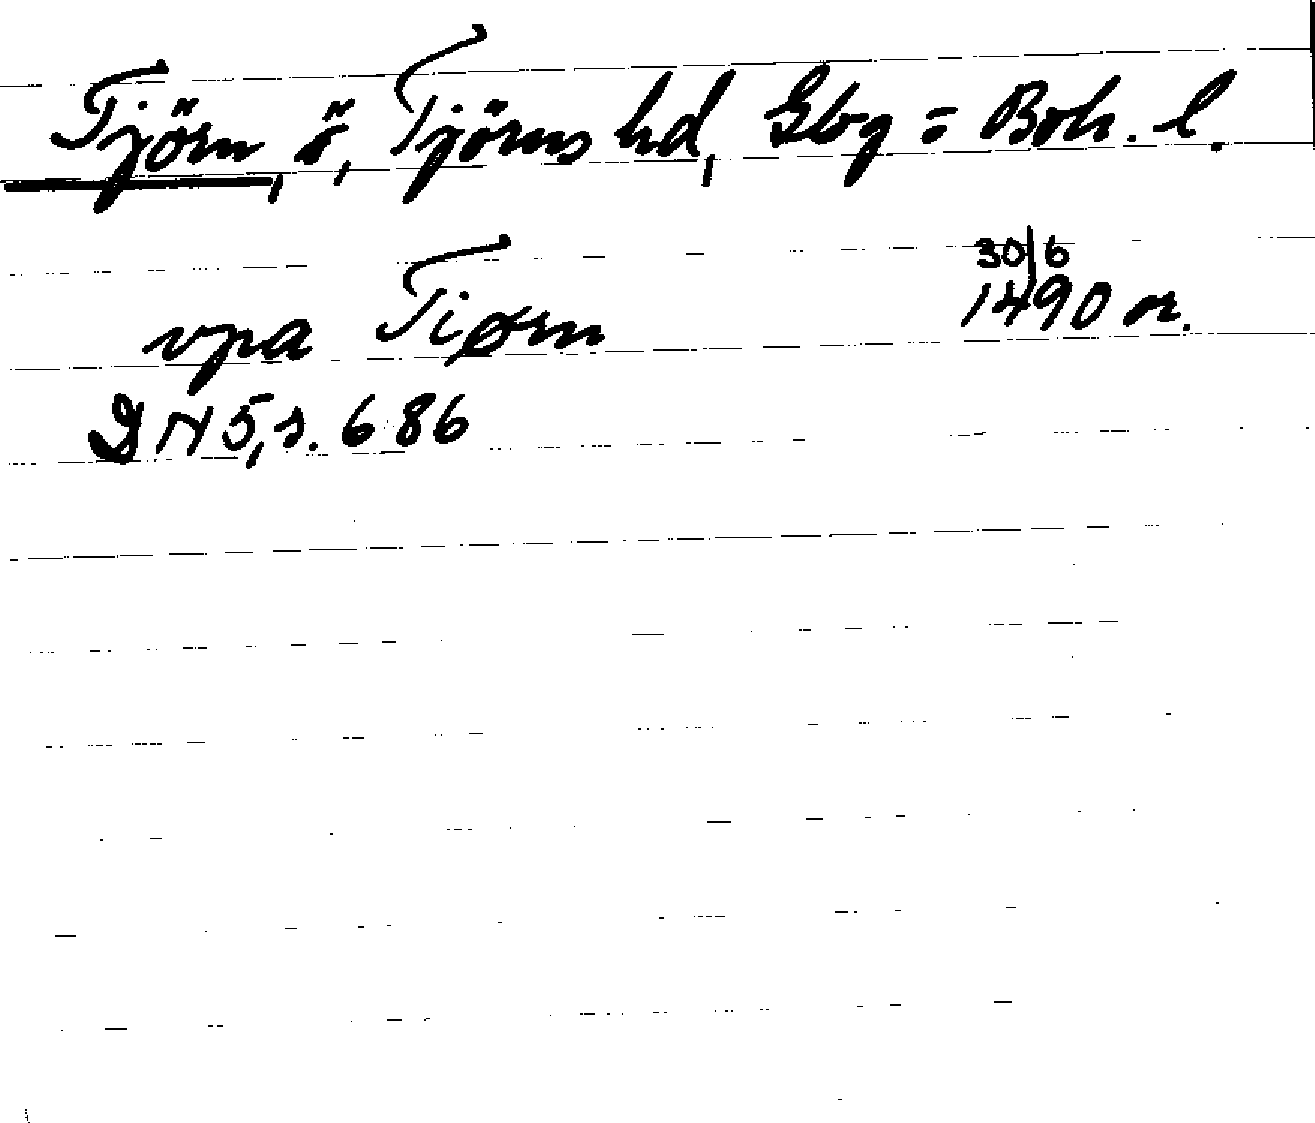 Tjörn, ö, Tjörns hd, Gbg = Boh. l.
vpa Tiørn 30/6 1490 or.
DN 5, s. 686